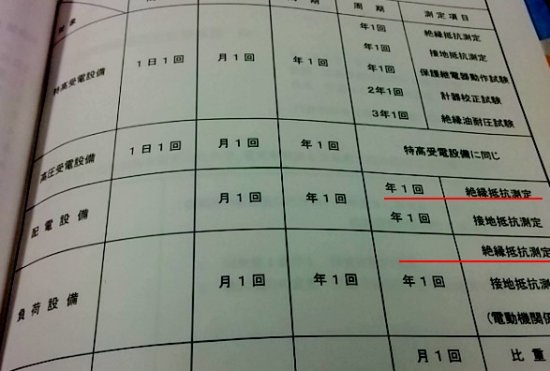 周期 測定項目
年1回 絶縁抵抗測定
年1回 接地抵抗測定
年1回 保護継電器動作試験
2年1回 計器校正試験
3年1回 絶縁油耐圧試験
特高受電設備 1日1回 月1回 年1回
高圧受電設備 1日1回 月1回 年1回 特高受電設備に同じ
配電設備 月1回 年1回
年1回 絶縁抵抗測定
年1回 接地抵抗測定
負荷設備 月1回 年1回 年1回
絶縁抵抗測定
接地抵抗測
(電動機関係
月1回 比重